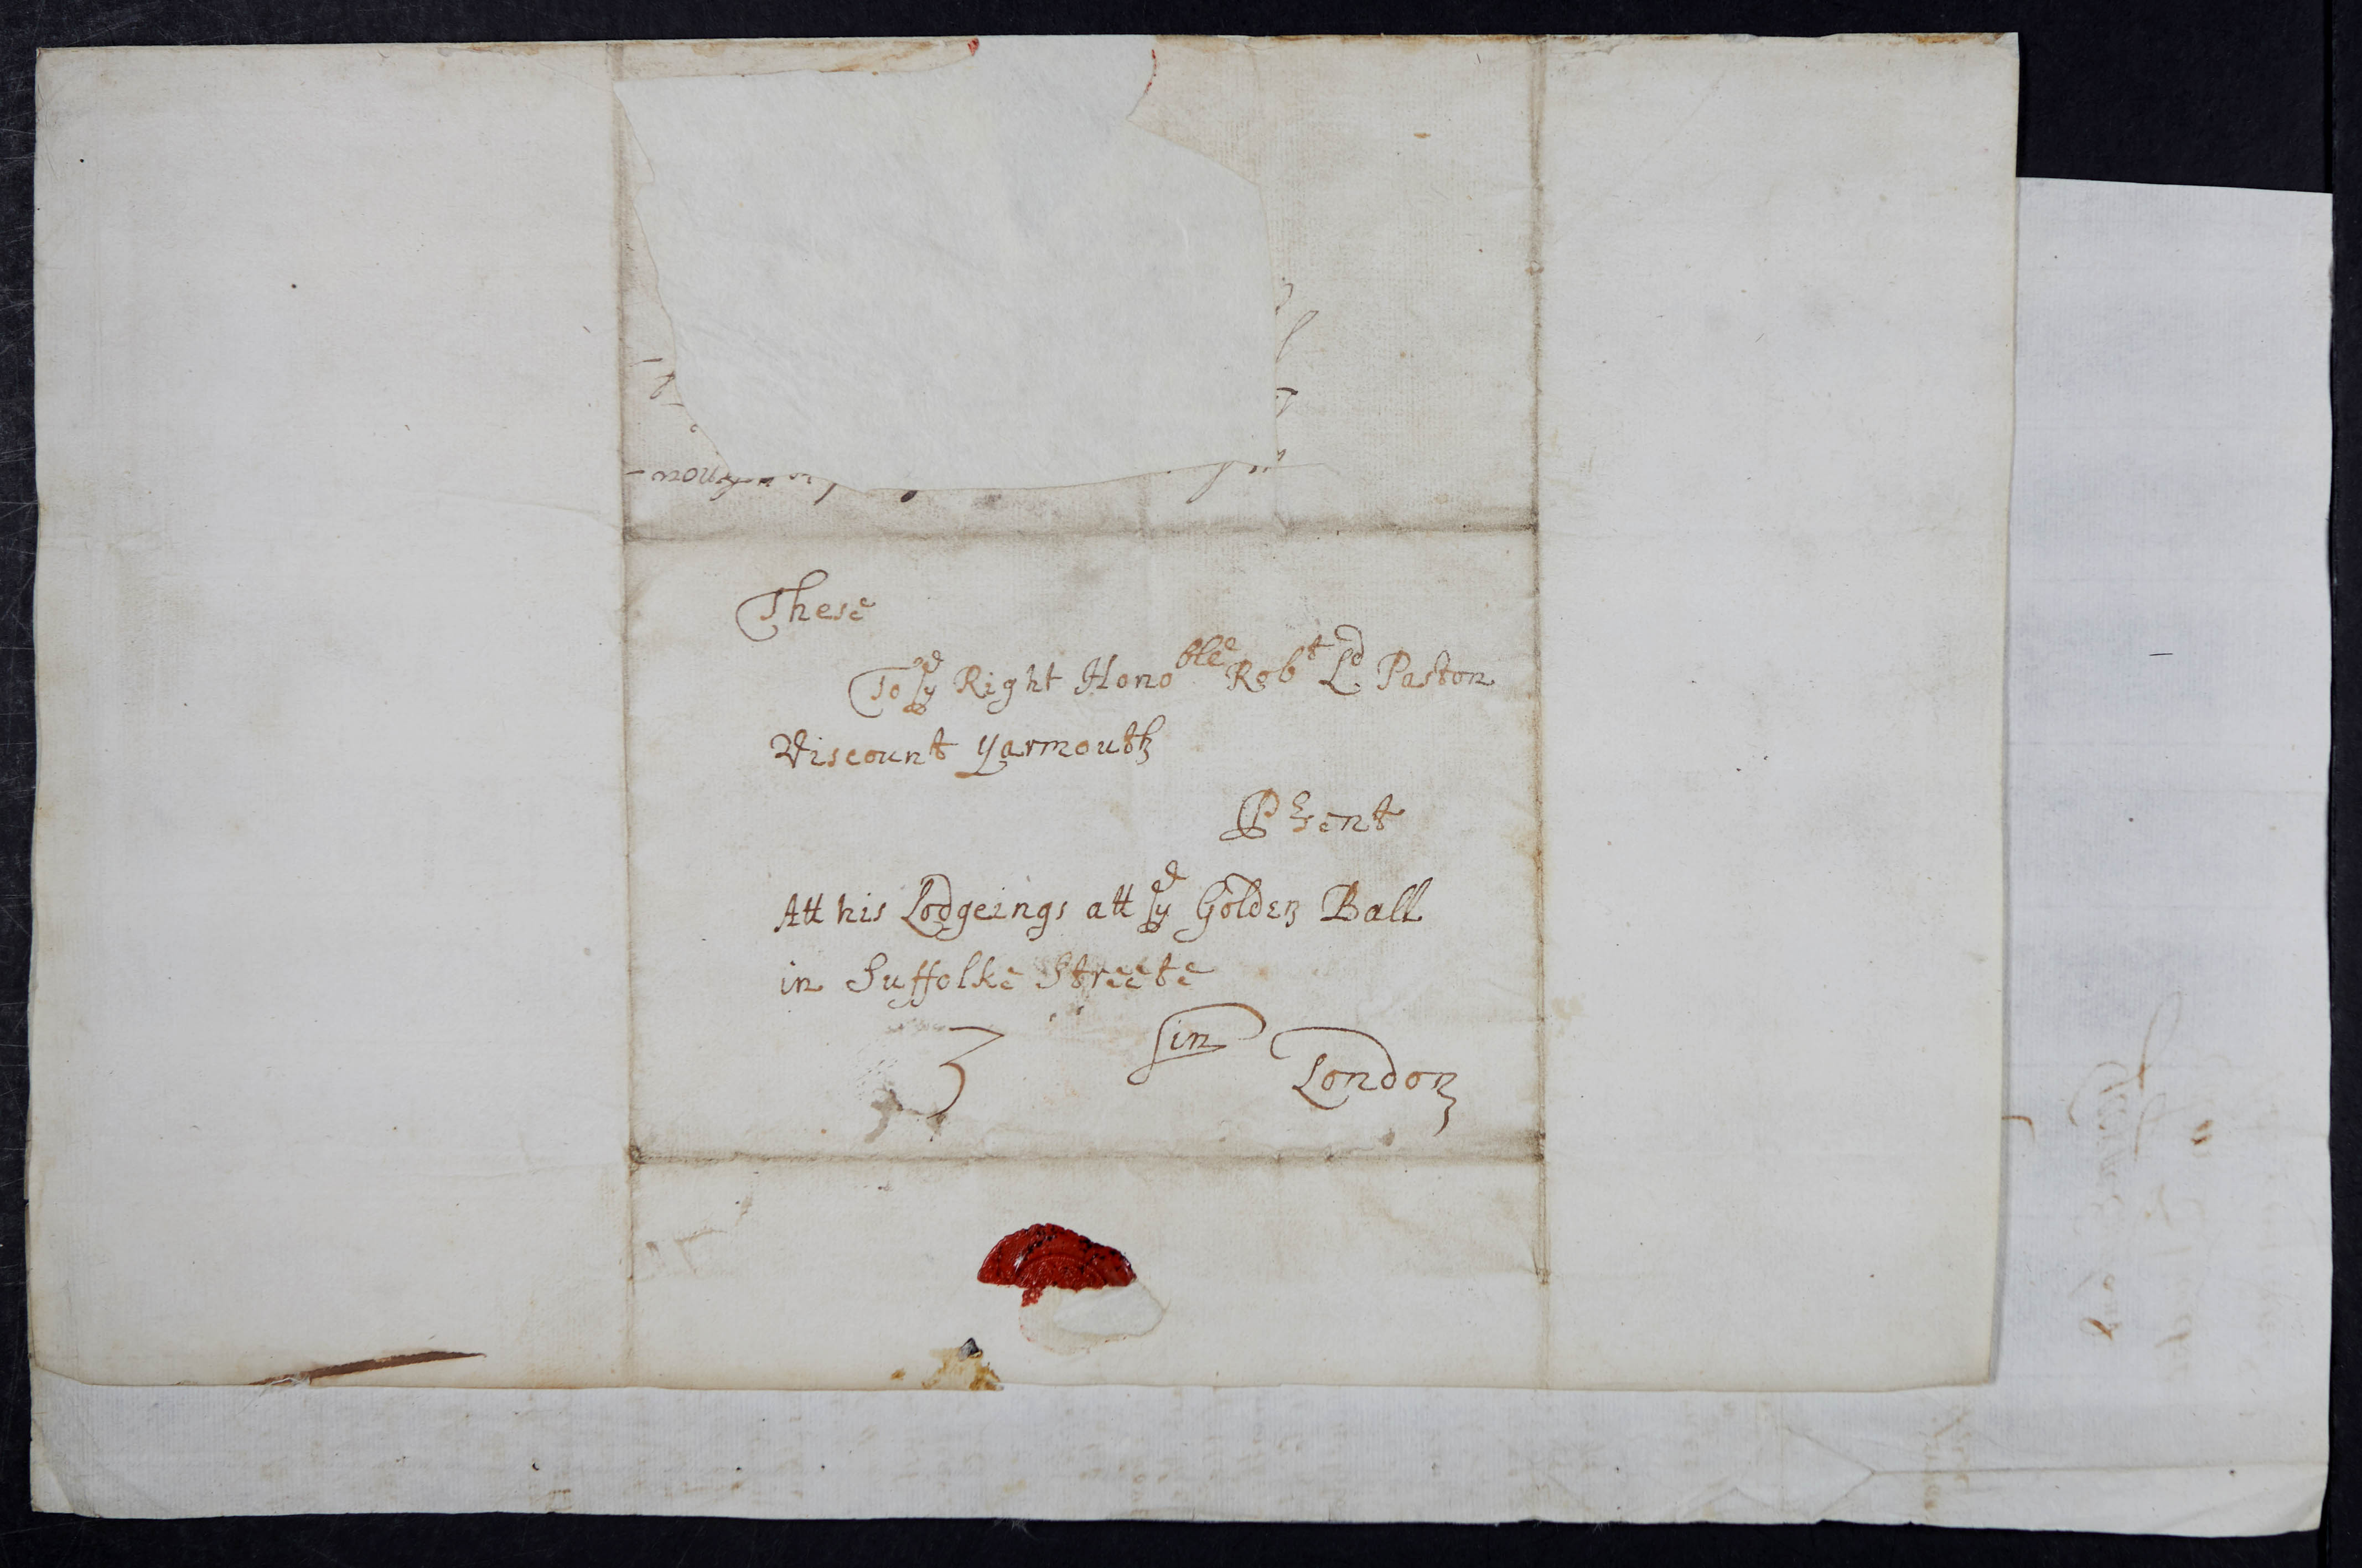 These
To ye Right Honoble Robt Ld Paston
Viscount Yarmouth
Psent
Att his Lodgeings att ye Golden Ball
in Suffolke Streete
3 in London